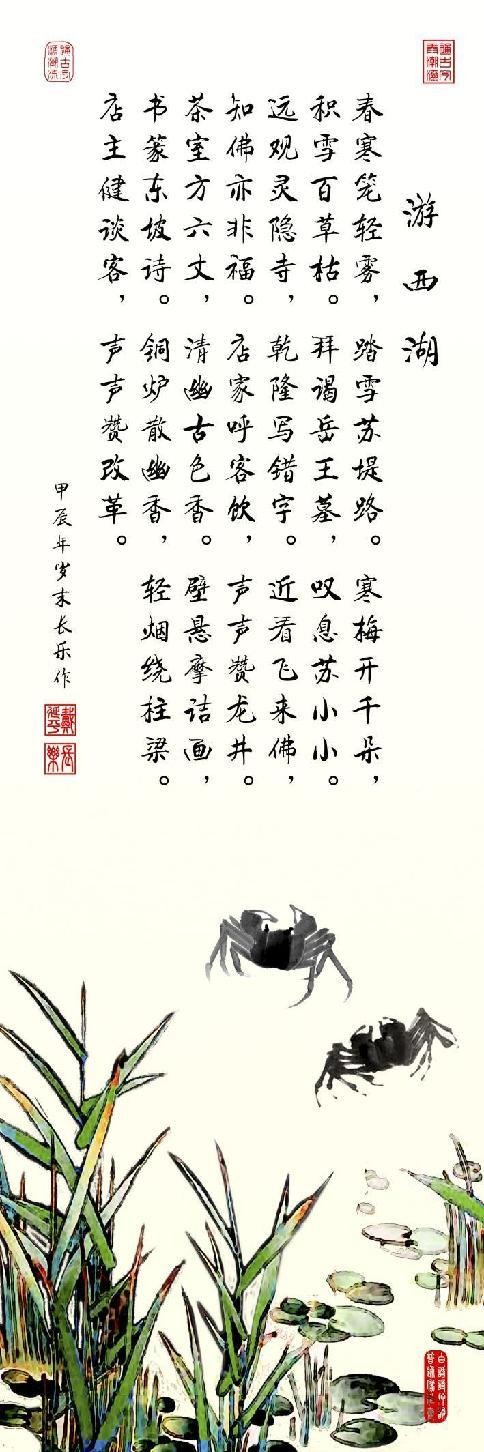 游西湖
春寒笼轻雾，踏雪苏堤路。寒梅开千朵，
积雪百草枯。拜谒岳王墓，叹息苏小小。
远观灵隐寺，乾隆写错字。近看飞来佛，
知佛亦非福。店家呼客饮，声声赞龙井。
茶室方六丈，清幽古色香。壁悬摩诘画，
书篆东坡诗。铜炉散幽香，轻烟绕柱梁。
店主健谈客，声声赞改革。
甲辰年岁末长乐作
長樂